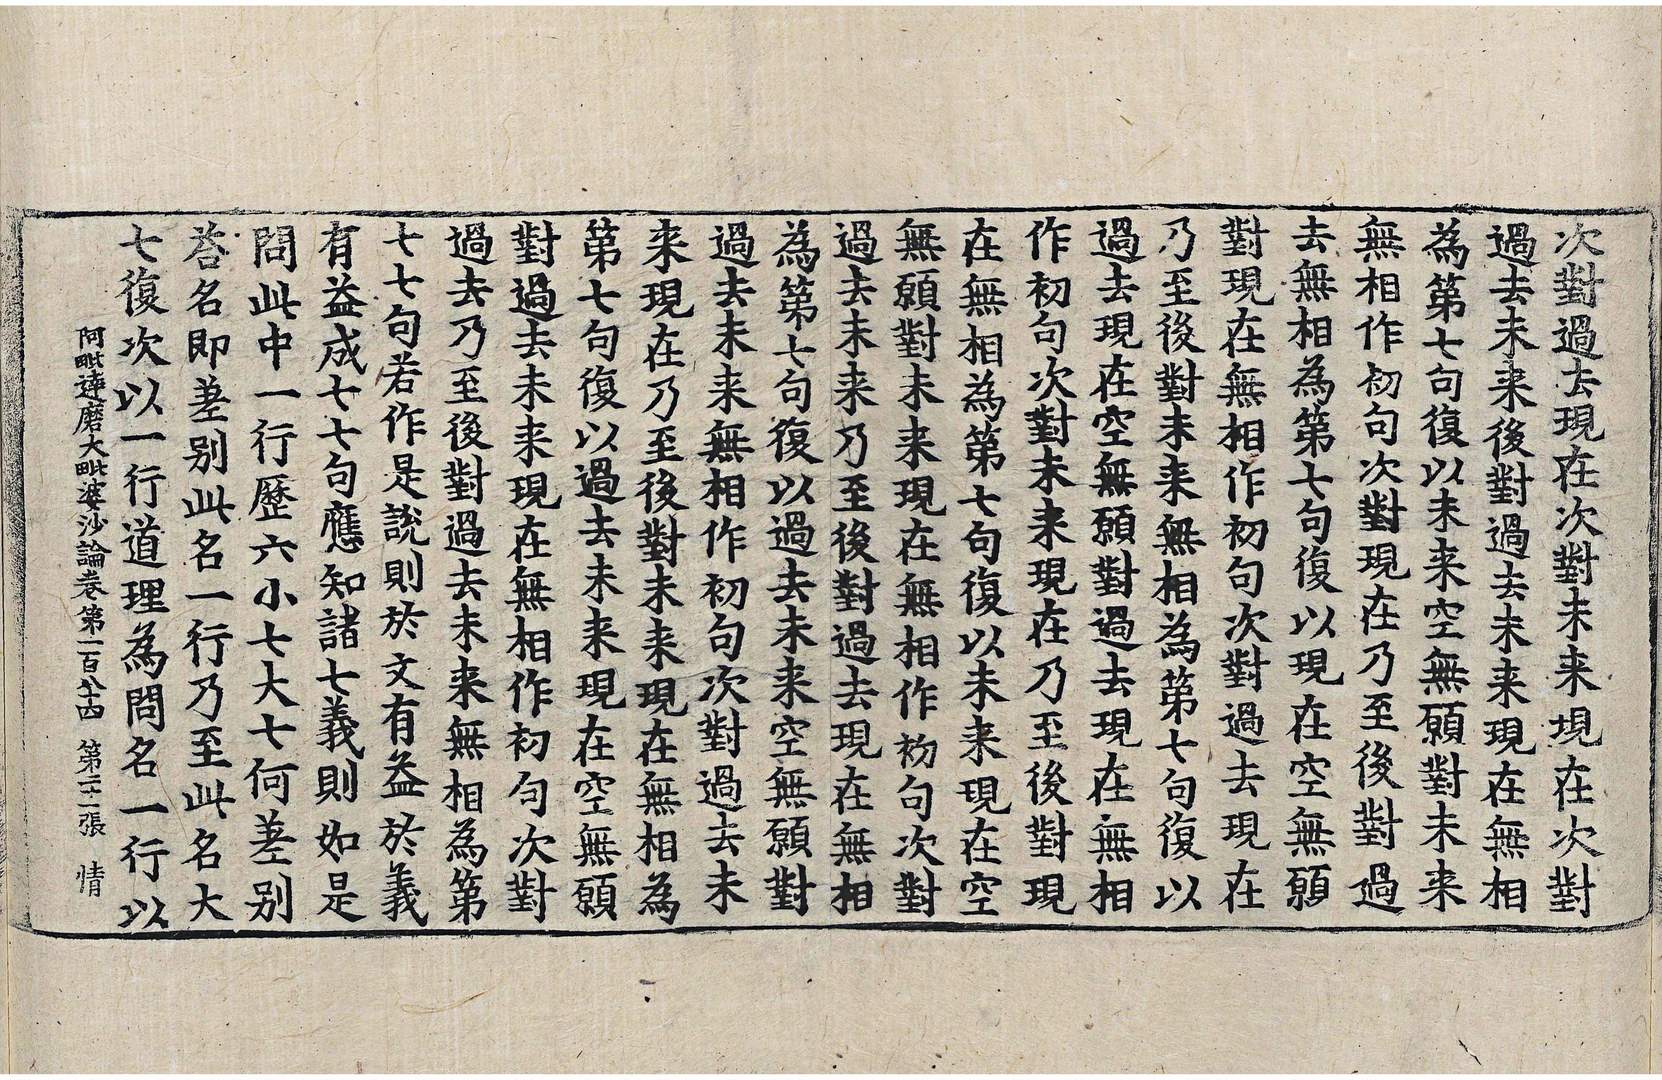 次對過去現在次對未来現在次對
過去未来後對過去未来現在無相
為第七句復以未来空無願對未来
無相作初句次對現在乃至後對過
去無相為第七句復以現在空無願
對現在無相作初句次對過去現在
乃至後對未来無相為第七句復以
過去現在空無願對過去現在無相
作初句次對未来現在乃至後對現
在無相為第七句復以未来現在空
無願對未来現在無相作初句次對
過去未来乃至後對過去現在無相
為第七句復以過去未来空無願對
過去未来無相作初句次對過去未
来現在乃至後對未来現在無相為
第七句復以過去未来現在空無願
對過去未来現在無相作初句次對
過去乃至後對過去未来無相為第
七七句若作是說則於文有益於義
有益成七七句應知諸七義則如是
問此中一行歷六小七大七何差别
荅名即差别此名一行乃至此名大
七復次以一行道理為問名一行以
阿毗達磨大毗婆沙論卷第一百八十四 第二十一張 情